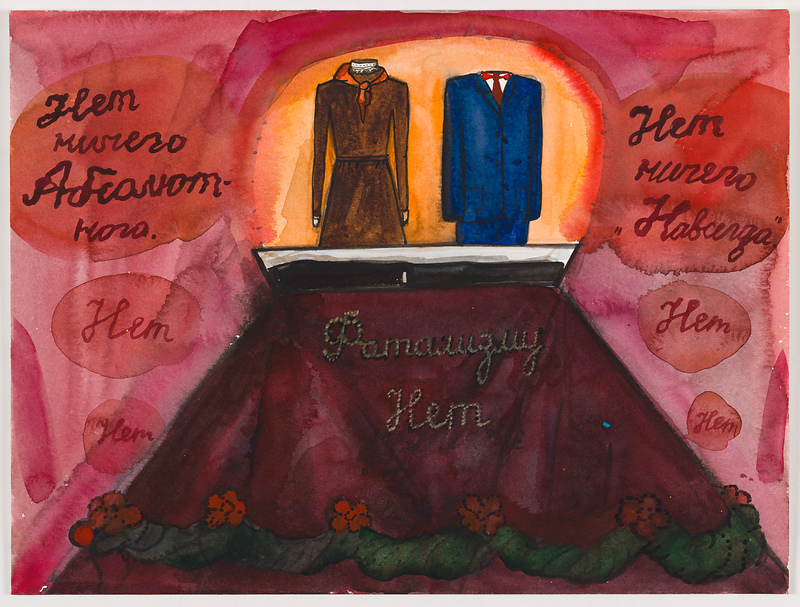 Нет
ничего
Абсалют-
ного.
Нет
Нет
Нет
ничего
„Навсегда"
Нет
Нет
Фатализму
Нет